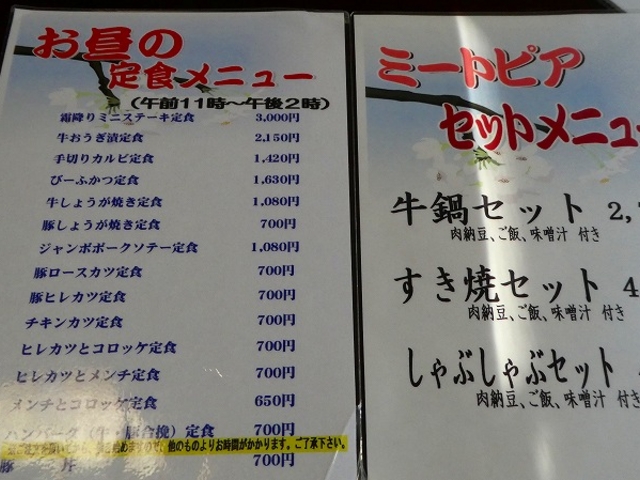 お昼の
定食メニュー
(午前11時～午後2時)
霜降りミニステーキ定食 3,000円
牛おうぎ漬定食 2,150円
手切りカルビ定食 1,420円
びーふかつ定食 1,630円
牛しょうが焼き定食 1,080円
豚しょうが焼き定食 700円
ジャンボポークソテー定食 1,080円
豚ロースカツ定食 700円
豚ヒレカツ定食 700円
チキンカツ定食 700円
ヒレカツとコロッケ定食 700円
ヒレカツとメンチ定食 700円
メンチとコロッケ定食 650円
ハンバーグ(牛・豚合挽)定食 700円
他のものよりお時間がかかります。ご了承下さい。
豚 丼 700円
ミートピア
セットメニュー
牛鍋セット 2,
肉納豆、ご飯、味噌汁 付き
すき焼セット 4
肉納豆、ご飯、味噌汁 付き
しゃぶしゃぶセット
肉納豆、ご飯、味噌汁 付き